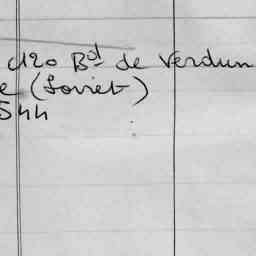 120 Bd de Verdun
e (Loiret)
544